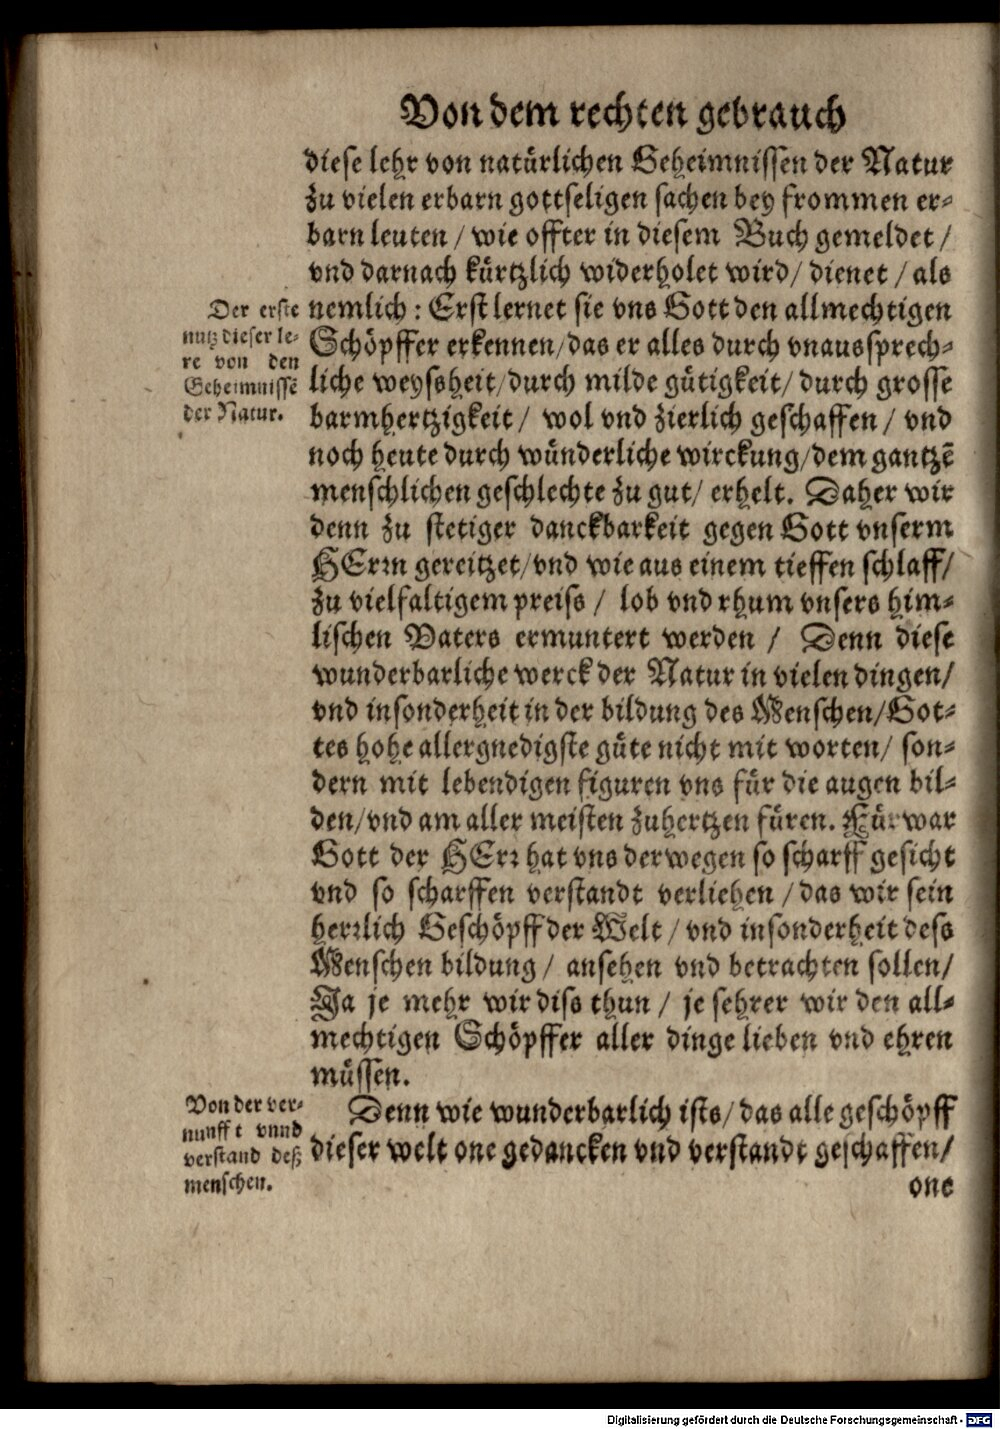 Von dem rechten gebrauch
diese lehr von natürlichen Geheimnissen der Natur
zu vielen erbarn gottseligen sachen bey frommen er-
barn leuten / wie offter in diesem Buch gemeldet /
vnd darnach kürtzlich widerholet wird / dienet / als
nemlich : Erst lernet sie vns Gott den allmechtigen
Schöpffer erkennen / das er alles durch vnaussprech-
liche weyssheit / durch milde gütigkeit / durch grosse
barmhertzigkeit / wol vnd zierlich geschaffen / vnd
noch heute durch wünderliche wirckung / dem gantzē
menschlichen geschlechte zu gut / erhelt. Daher wir
denn zu stetiger danckbarkeit gegen Gott vnserm
HErrn gereitzet / vnd wie aus einem tieffen schlaff /
zu vielfaltigem preiss / lob vnd rhum vnsers him-
lischen Vaters ermuntert werden / Denn diese
wunderbarliche werck der Natur in vielen dingen /
vnd insonderheit in der bildung des Menschen / Got-
tes hohe allergnedigste güte nicht mit worten / son-
dern mit lebendigen figuren vns für die augen bil-
den / vnd am aller meisten zuhertzen füren. Fürwar
Gott der HErr hat vns derwegen so scharff gesicht
vnd so scharffen verstandt verliehen / das wir sein
herrlich Geschöpff der Welt / vnd insonderheit dess
Menschen bildung / ansehen vnd betrachten sollen /
Ja je mehr wir diss thun / je sehrer wir den all-
mechtigen Schöpffer aller dinge lieben vnd ehren
müssen.
Denn wie wunderbarlich ists / das alle geschöpff
dieser welt one gedancken vnd verstandt geschaffen /
one
Der erste
nutz dieser le-
re von den
Geheimnissē
der Natur.
Von der ver-
nunfft vnnd
verstand deß
menschen.
Digitalisierung gefördert durch die Deutsche Forschungsgemeinschaft - DFG